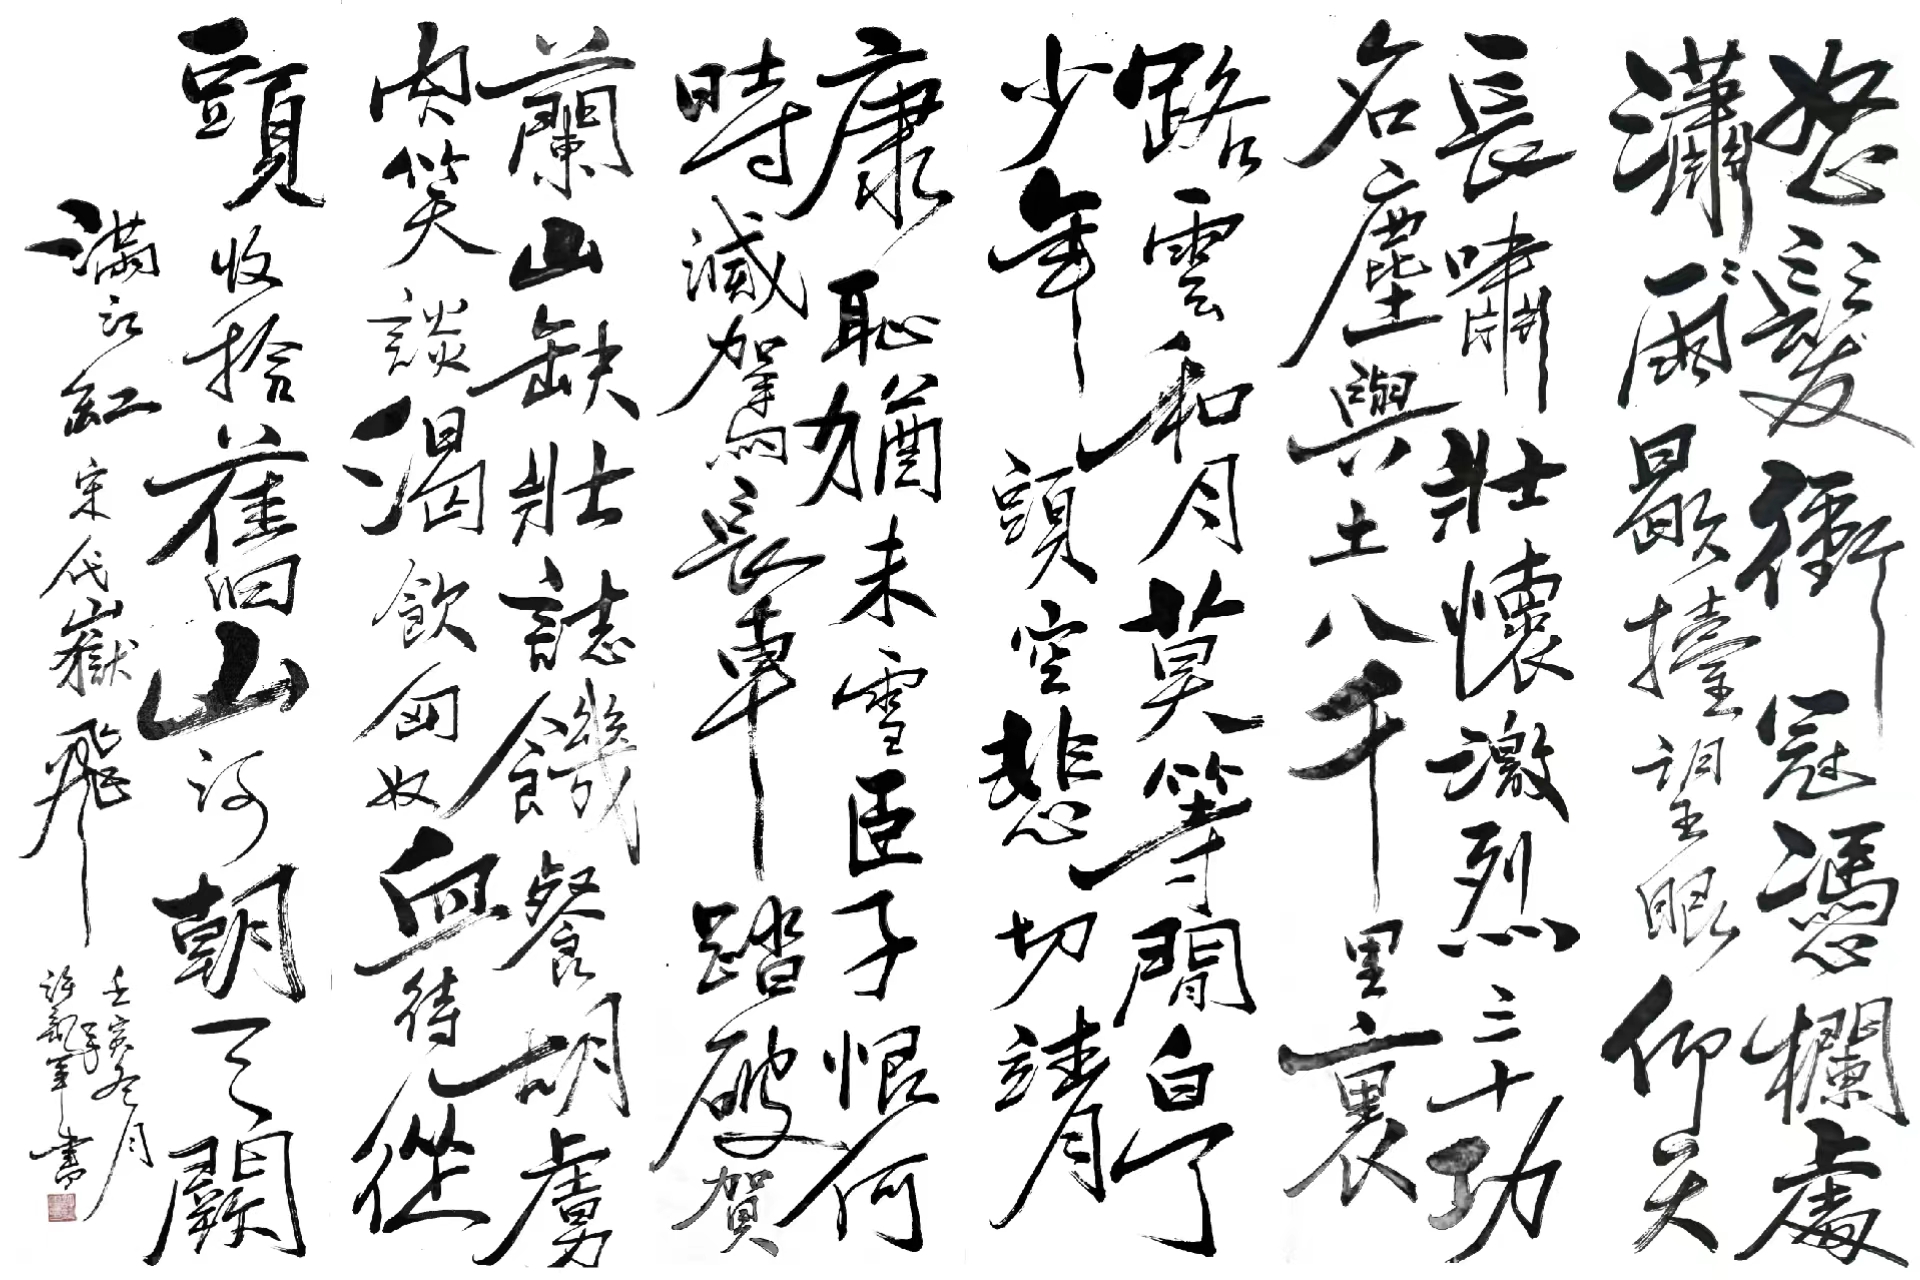 怒髮衝冠憑欄處
瀟〻雨歇擡望眼仰天
長嘯壯懷激烈三十功
名塵與土八千里裏
路雲和月莫等閒白了
少年頭空悲切靖
康恥猶未雪臣子恨何
時滅駕長車踏破賀
蘭山缺壯誌饑餐胡虜
肉笑談渴飲匈奴血待從
頭收拾舊山河朝天闕
滿江紅 宋代嶽飛
壬寅冬月
許軍書